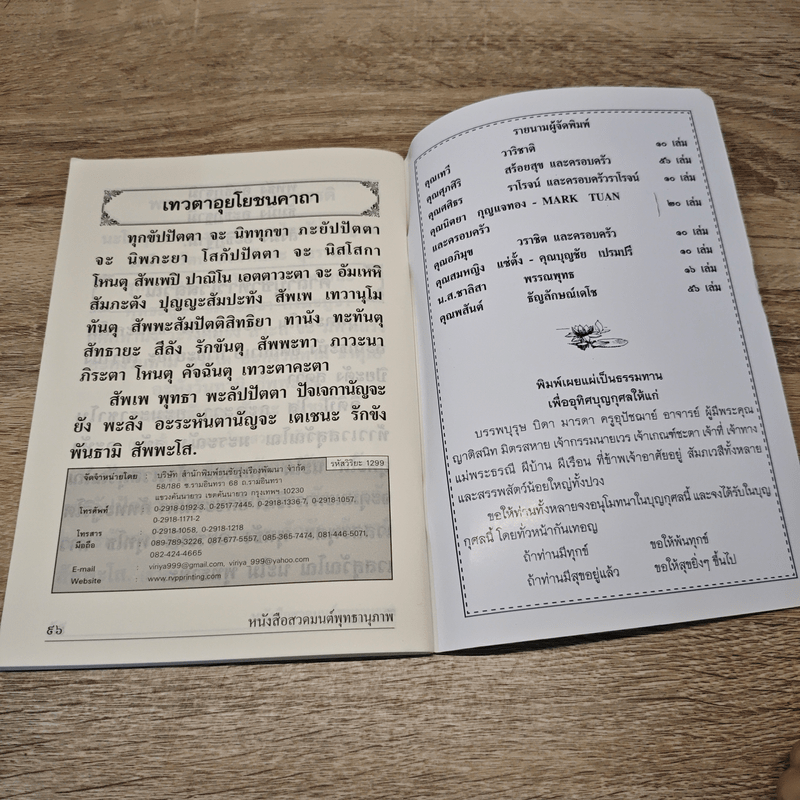 เทวตาอุยโยชนคาถา
ทุกขัปปัตตา จะ นิททุกขา ภะยัปปัตตา
จะ นิพภะยา โสกัปปัตตา จะ นิสโสกา
โหนตุ สัพเพปิ ปาณิโน เอตตาวะตา จะ อัมเหหิ
สัมภะตัง ปุญญะสัมปะทัง สัพเพ เทวานุโม
ทันตุ สัพพะสัมปัตติสิทธิยา ทานัง ทะทันตุ
สัทธายะ สีลัง รักขันตุ สัพพะทา ภาวะนา
ภิระตา โหนตุ คัจฉันตุ เทวะตาคะตา
สัพเพ พุทธา พะลัปปัตตา ปัจเจกานัญจะ
ยัง พะลัง อะระหันตานัญจะ เตเชนะ รักขัง
พันธามิ สัพพะโส.
รหัสวิริยะ 1299
จัดจำหน่ายโดย : บริษัท สำนักพิมพ์ธนชัยรุ่งเรืองพัฒนา จำกัด
58/186 ซ.รามอินทรา 68 ถ.รามอินทรา
แขวงคันนายาว เขตคันนายาว กรุงเทพฯ 10230
โทรศัพท์ : 0-2918-0192-3, 0-2517-7445, 0-2918-1336-7, 0-2918-1057,
0-2918-1171-2
โทรสาร : 0-2918-1058, 0-2918-1218
มือถือ : 089-789-3226, 087-677-5557, 085-365-7474, 081-446-5071,
082-424-4665
E-mail : viriya999@gmail.com, viriya_999@yahoo.com
Website : www.rvpprinting.com
๙๖
หนังสือสวดมนต์พุทธานุภาพ
รายนามผู้จัดพิมพ์
คุณเทวี วาริชาติ ๑๐ เล่ม
คุณศุภศิริ สร้อยสุข และครอบครัว ๕๖ เล่ม
คุณศศิธร ราโรจน์ และครอบครัวราโรจน์ ๑๐ เล่ม
คุณนิตยา กุญแจทอง - MARK TUAN
และครอบครัว ๒๐ เล่ม
คุณอภิมุข วราชิต และครอบครัว ๑๐ เล่ม
คุณสมหญิง แซ่ตั้ง - คุณบุญชัย เปรมปรี ๑๐ เล่ม
น.ส.ชาลิสา พรรณพุทธ ๑๖ เล่ม
คุณพสันต์ ธัญลักษณ์เดโช ๕๖ เล่ม
พิมพ์เผยแผ่เป็นธรรมทาน
เพื่ออุทิศบุญกุศลให้แก่
บรรพบุรุษ บิดา มารดา ครูอุปัชฌาย์ อาจารย์ ผู้มีพระคุณ
ญาติสนิท มิตรสหาย เจ้ากรรมนายเวร เจ้าเกณฑ์ชะตา เจ้าที่ เจ้าทาง
แม่พระธรณี ผีบ้าน ผีเรือน ที่ข้าพเจ้าอาศัยอยู่ สัมภเวสีทั้งหลาย
และสรรพสัตว์น้อยใหญ่ทั้งปวง
ขอให้ท่านทั้งหลายจงอนุโมทนาในบุญกุศลนี้ และจงได้รับในบุญ
กุศลนี้ โดยทั่วหน้ากันเทอญ
ถ้าท่านมีทุกข์ ขอให้พ้นทุกข์
ถ้าท่านมีสุขอยู่แล้ว ขอให้สุขยิ่งๆ ขึ้นไป